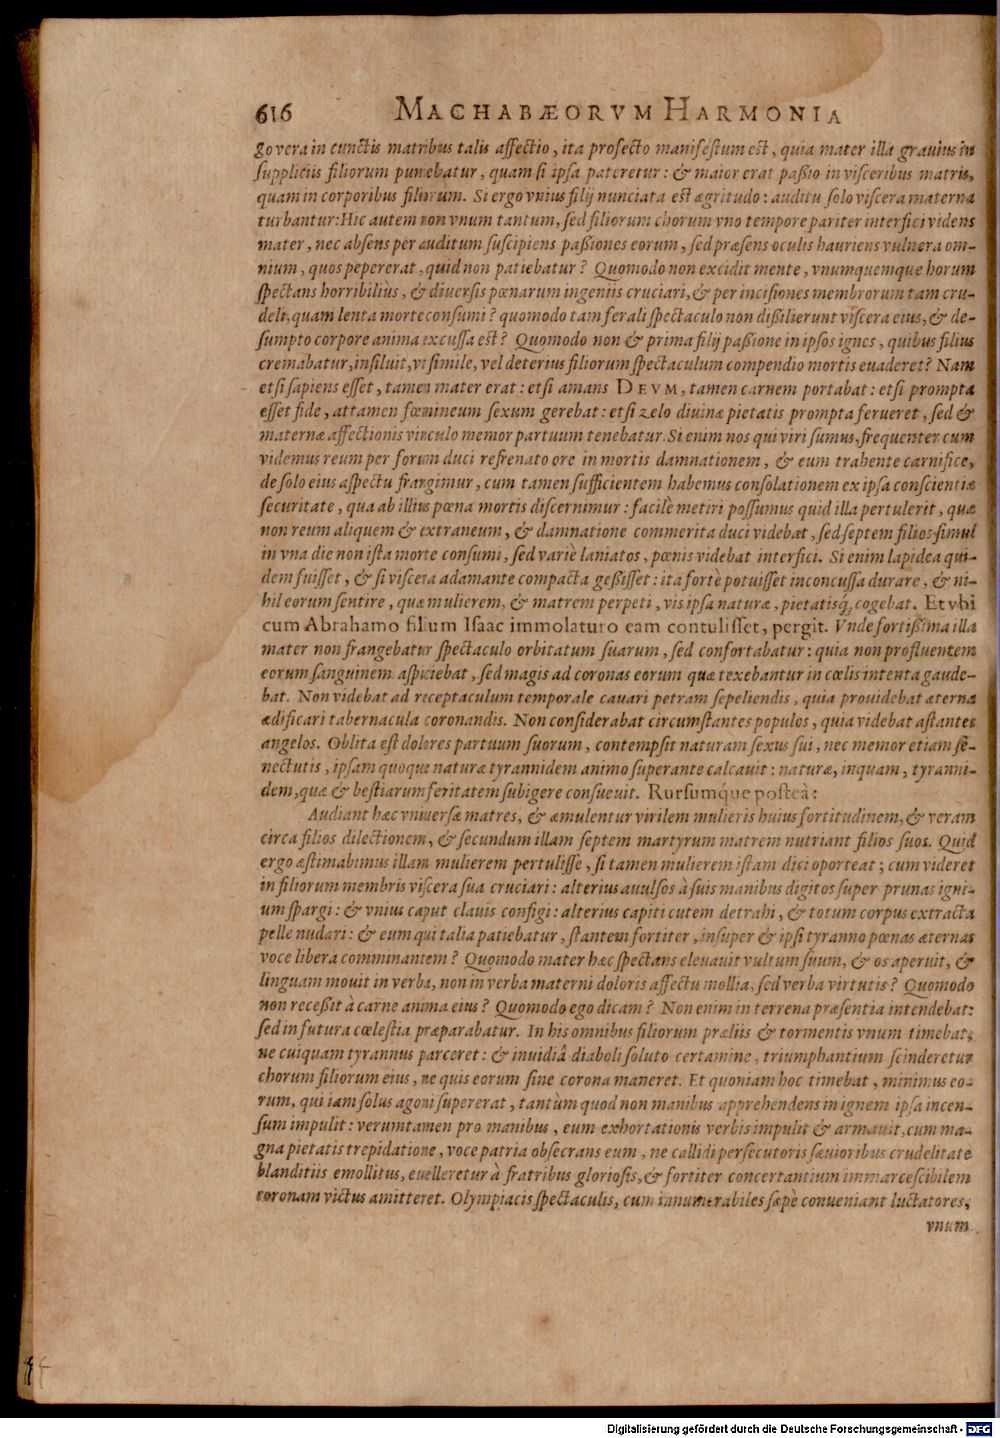 616 MACHABÆORVM HARMONIA
go vera in cunctis matribus talis affectio, ita profecto manifestum est, quia mater illa grauius in
suppliciis filiorum puniebatur, quam si ipsa pateretur: & maior erat paßio in visceribus matris,
quam in corporibus filiorum. Si ergo vnius filij nunciata est ægritudo: auditu solo viscera materna
turbantur: Hic autem non vnum tantum, sed filiorum chorum vno tempore pariter interfici videns
mater, nec absens per auditum suscipiens paßiones eorum, sed præsens oculis hauriens vulnera om-
nium, quos pepererat, quid non patiebatur? Quomodo non excidit mente, vnumquemque horum
spectans horribiliùs, & diuersis pœnarum ingeniis cruciari, & per incisiones membrorum tam cru-
deli, quam lenta morte consumi? quomodo tam ferali spectaculo non dißilierunt viscera eius, & de-
sumpto corpore anima excussa est? Quomodo non & prima filij paßione in ipsos ignes, quibus filius
cremabatur, insiluit, vt simile, vel deterius filiorum spectaculum compendio mortis euaderet? Nam
etsi sapiens esset, tamen mater erat: etsi amans DEVM, tamen carnem portabat: etsi prompta
esset fide, attamen fœmineum sexum gerebat: etsi zælo diuinæ pietatis prompta ferueret, sed &
maternæ affectionis vinculo memor partuum tenebatur. Si enim nos qui viri sumus, frequenter cum
videmus reum per forum duci refrenato ore in mortis damnationem, & eum trahente carnifice,
de solo eius aspectu frangimur, cum tamen sufficientem habemus consolationem ex ipsa conscientiæ
securitate, qua ab illius pœna mortis discernimur: facilè metiri possumus quid illa pertulerit, quæ
non reum aliquem & extraneum, & damnatione commerita duci videbat, sed septem filios simul
in vna die non ista morte consumi, sed variè laniatos, pœnis videbat interfici. Si enim lapidea qui-
dem fuisset, & si viscera adamante compacta geßisset: ita fortè potuisset inconcussa durare, & ni-
hil eorum sentire, quæ mulierem, & matrem perpeti, vis ipsa naturæ, pietatisq́; cogebat. Et vbi
cum Abrahamo filium Isaac immolaturo eam contulisset, pergit. Vnde fortißima illa
mater non frangebatur spectaculo orbitatum suarum, sed confortabatur: quia non profluentem
eorum sanguinem aspiciebat, sed magis ad coronas eorum quæ texebantur in cœlis intenta gaude-
bat. Non videbat ad receptaculum temporale cauari petram sepeliendis, quia prouidebat æterna
ædificari tabernacula coronandis. Non considerabat circumstantes populos, quia videbat astantes
angelos. Oblita est dolores partuum suorum, contempsit naturam sexus sui, nec memor etiam se-
nectutis, ipsam quoque naturæ tyrannidem animo superante calcauit: naturæ, inquam, tyranni-
dem, quæ & bestiarum feritatem subigere consueuit. Rursumq́ue posteà:
Audiant hæc vniuersæ matres, & æmulentur virilem mulieris huius fortitudinem, & veram
circa filios dilectionem, & secundum illam septem martyrum matrem nutriant filios suos. Quid
ergo æstimabimus illam mulierem pertulisse, si tamen mulierem istam dici oporteat; cum videret
in filiorum membris viscera sua cruciari: alterius auulsos à suis manibus digitos super prunas igni-
um spargi: & vnius caput clauis configi: alterius capiti cutem detrahi, & totum corpus extracta
pelle nudari: & eum qui talia patiebatur, stantem fortiter, insuper & ipsi tyranno pœnas æternas
voce libera comminantem? Quomodo mater hæc spectans eleuauit vultum suum, & os aperuit, &
linguam mouit in verba, non in verba materni doloris affectu mollia, sed verba virtutis? Quomodo
non receßit à carne anima eius? Quomodo ego dicam? Non enim in terrena præsentia intendebat:
sed in futura cœlestia præparabatur. In his omnibus filiorum præliis & tormentis vnum timebat,
ne cuiquam tyrannus parceret: & inuidiâ diaboli soluto certamine, triumphantium scinderetur
chorum filiorum eius, ne quis eorum sine corona maneret. Et quoniam hoc timebat, minimus eo-
rum, qui iam solus agoni supererat, tantùm quod non manibus apprehendens in ignem ipsa incen-
sum impulit: verumtamen pro manibus, eum exhortationis verbis impulit & armauit, cum ma-
gna pietatis trepidatione, voce patria obsecrans eum, ne callidi persecutoris sæuioribus crudelitate
blanditiis emollitus, euelleretur à fratribus gloriosis, & fortiter concertantium immarcescibilem
coronam victus amitteret. Olympiacis spectaculis, cum innumerabiles sæpè conueniant luctatores,
vnum
Digitalisierung gefördert durch die Deutsche Forschungsgemeinschaft - DFG